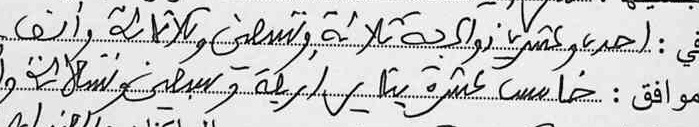 في : احدى وعشرين ذو الحجة ثلاثة وتسعين وثلاثمائة وألف
موافق : خامس عشرة يناير أربعة وسبعين وتسعمائة